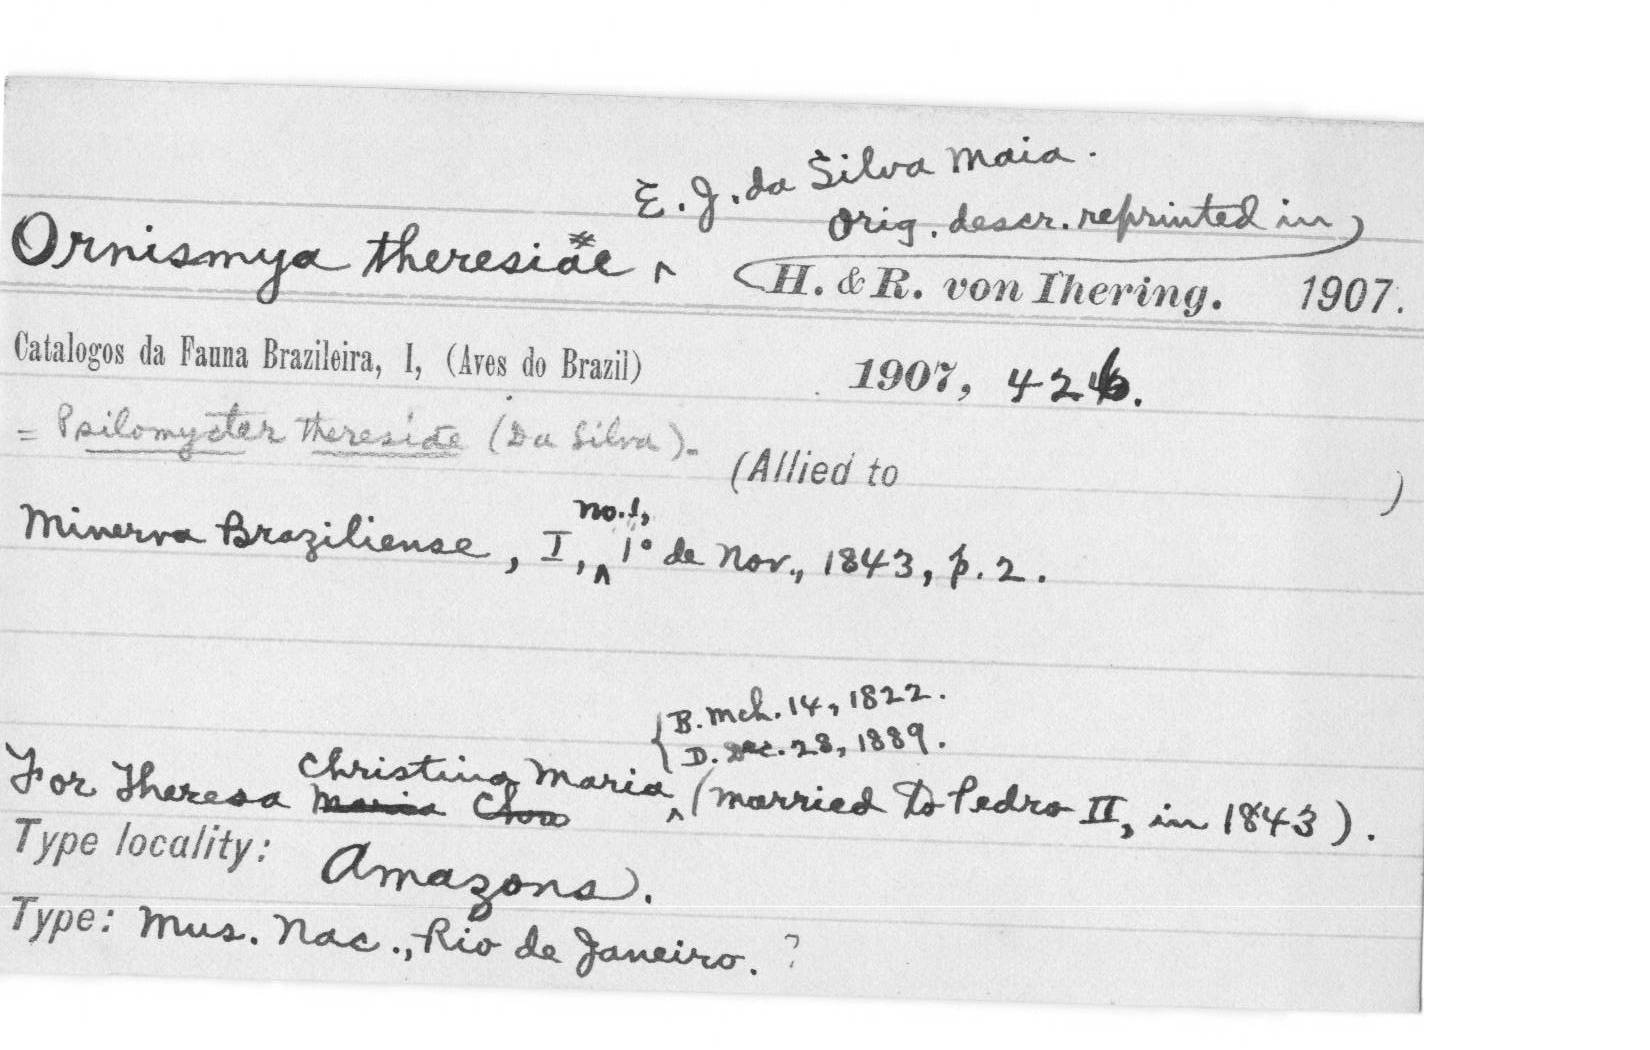 E. J. da Silva Maia.
Orig. descr. reprinted in
Ornismya theresiae * ^ H. & R. von Ihering. 1907.
Catalogos da Fauna Brazileira, I, (Aves do Brazil) 1907, 426.
= Psilomycter theresiae (Da Silva).
(Allied to )
no. 1,
Minerva Braziliense, I, ^ 1º de Nov., 1843, p. 2.
{ B. Mch. 14, 1822.
D. Dec. 28, 1889.
Christina Maria
For Theresa Maria ^ (married to Pedro II, in 1843).
Type locality: Amazons.
Type: Mus. Nac., Rio de Janeiro. ?